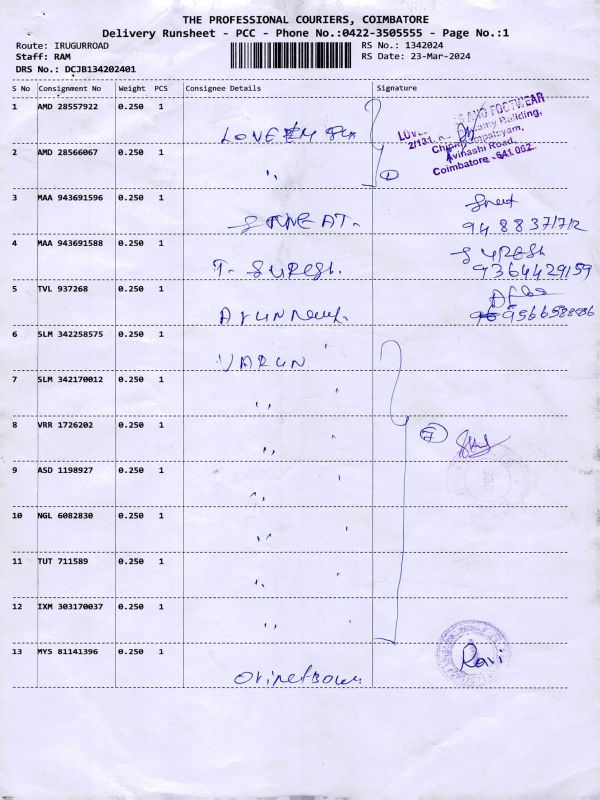 THE PROFESSIONAL COURIERS, COIMBATORE
Delivery Runsheet - PCC - Phone No.:0422-3505555 - Page No.:1
Route: IRUGURROAD
RS No.: 1342024
Staff: RAM
RS Date: 23-Mar-2024
DRS No.: DCJB134202401
S No Consignment No Weight PCS Consignee Details Signature
1 AMD 28557922 0.250 1
AND FOOTWEAR
2/131,
Building,
Avinashi Road,
Coimbatore - 641 062.
2 AMD 28566067 0.250 1 ,,
3 MAA 943691596 0.250 1
9488371712
4 MAA 943691588 0.250 1 T. SURESh. SURESh
9364429159
5 TVL 937268 0.250 1
6 SLM 342258575 0.250 1 VARUN
7 SLM 342170012 0.250 1 ,,
8 VRR 1726202 0.250 1 ,,
9 ASD 1198927 0.250 1 ,,
10 NGL 6082830 0.250 1 ,,
11 TUT 711589 0.250 1 ,,
12 IXM 303170037 0.250 1 ,,
13 MYS 81141396 0.250 1 Ravi